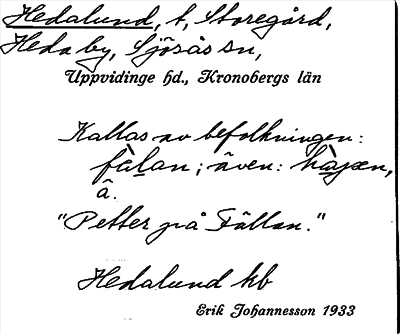 Hedalund, t, Storegård,
Heda by, Sjösås sn,
Uppvidinge hd., Kronobergs län
Kallas av befolkningen:
fàlan; även:
â.
"Petter på Fållan."
Hedalund kb
Erik Johannesson 1933